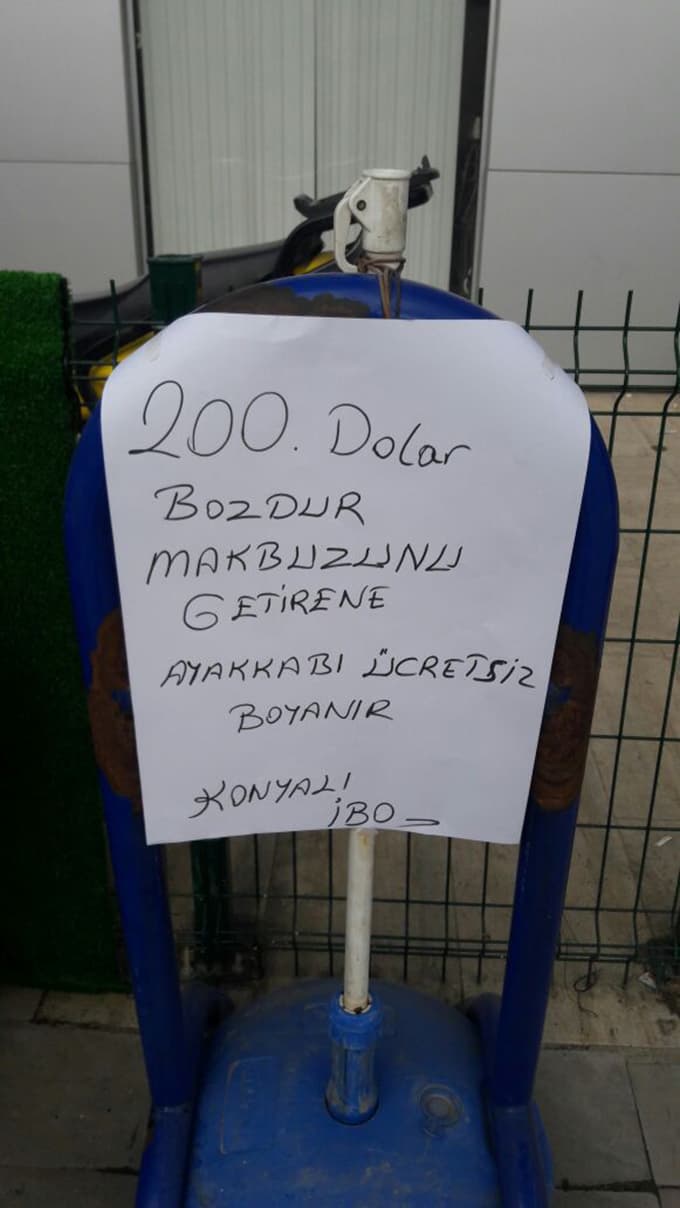 200. Dolar
BOZDUR
MAKBUZUNU
GETİRENE
AYAKKABI ÜCRETSİZ
BOYANIR
KONYALI
İBO